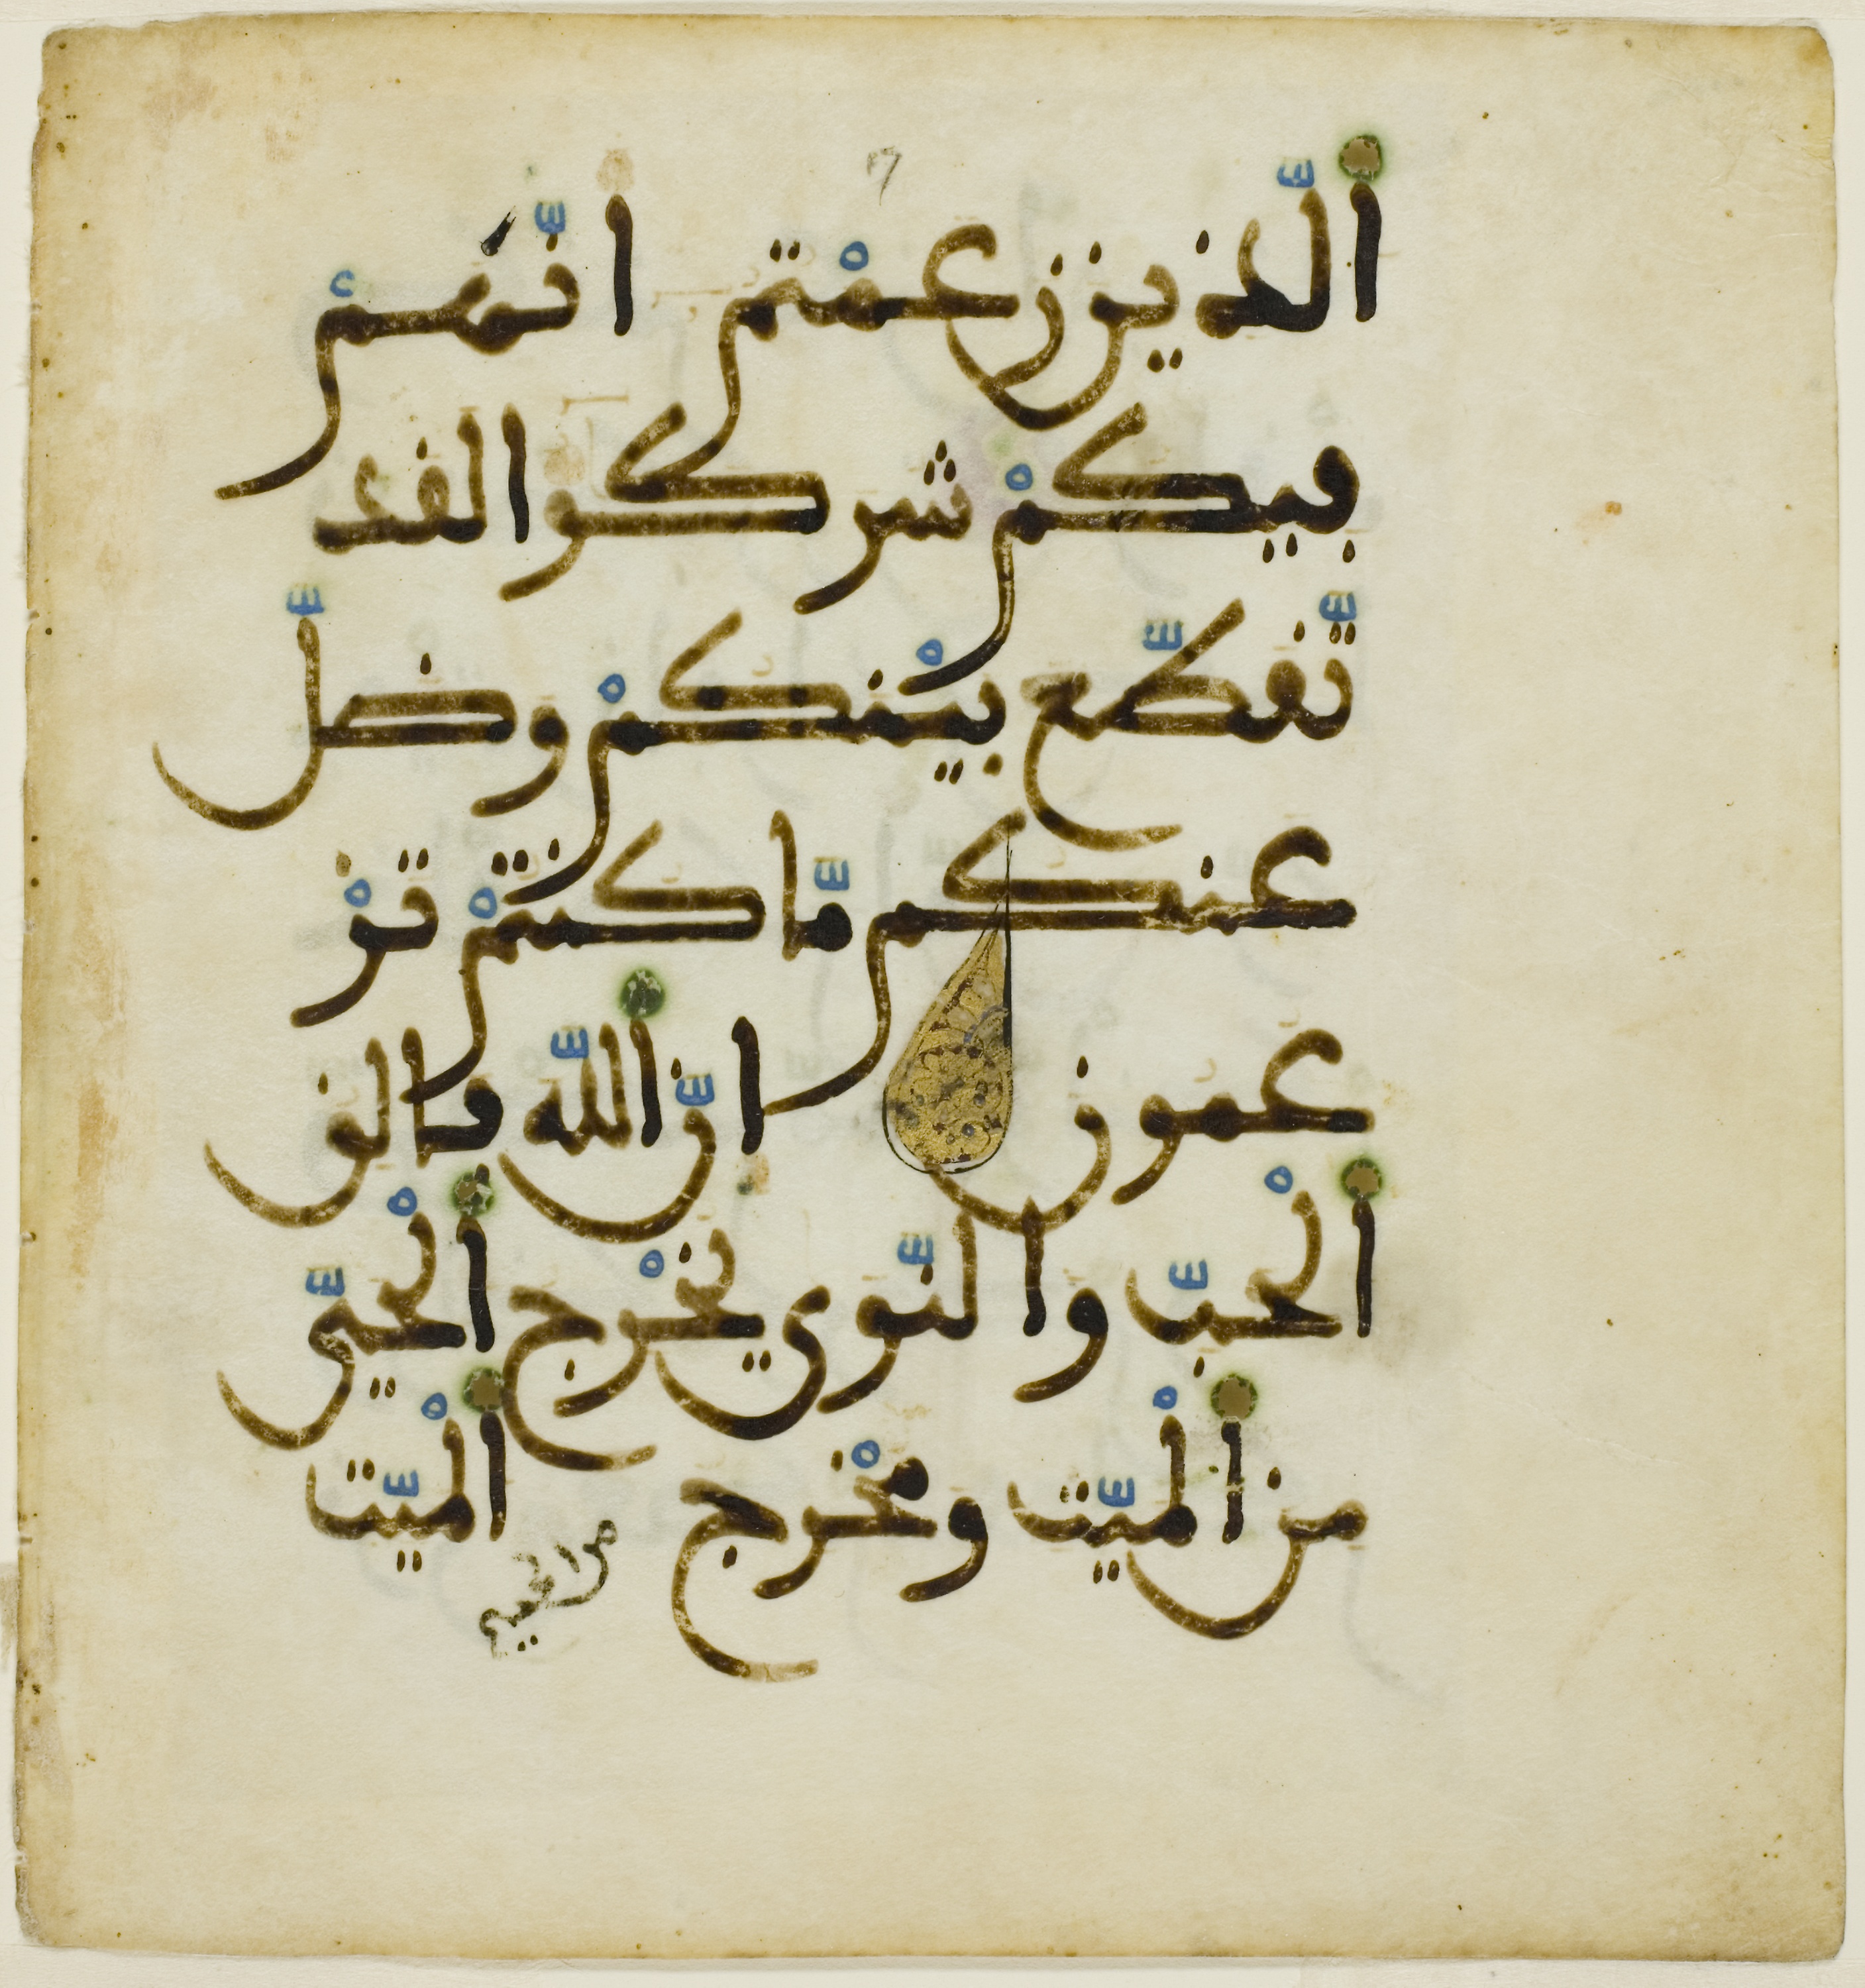 ٱلّذين زعمْتم انّهمْ
فيكمْ شركوا لقد
تّقطّع بيْنكمْ وضلّ
عنكم مّا كنتمْ تزْ
عمون انّ ٱللّه فالق
ٱلْحبّ والنّوى يخْرج ٱلْحيّ
من ٱلْميّت ومخْرج ٱلْميّت
من الحي